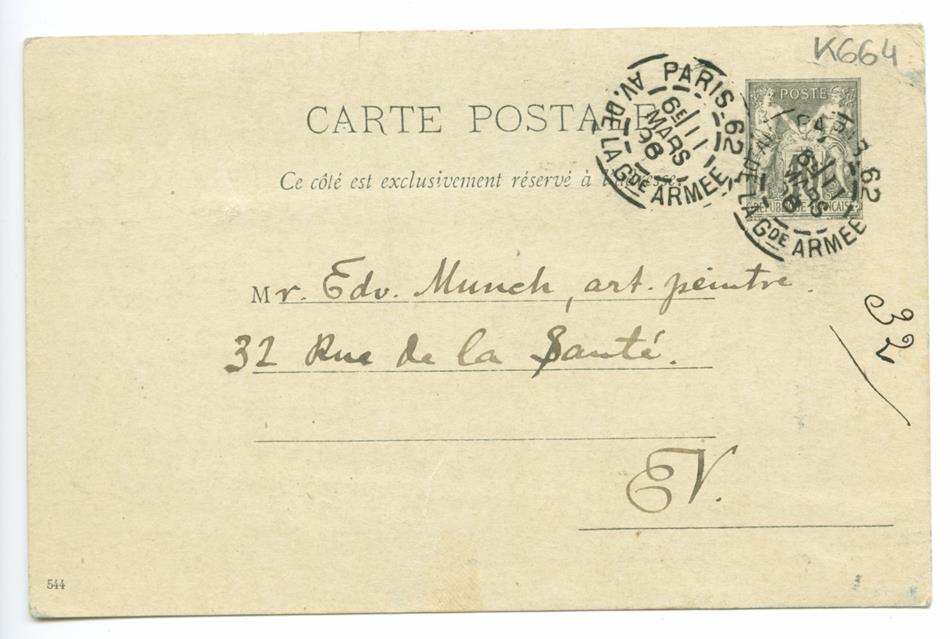 K664
CARTE POSTALE
Ce côté est exclusivement réservé à l'adresse.
PARIS_62
6E 11
MARS
96
AV. DE LA GDE ARMEE
POSTES
REPUBLIQUE FRANÇAISE
62
MARS
DE LA GDE ARMEE
Mr. Edv. Munch, art. peintre.
32 Rue de la Santé.
32
EV.
544